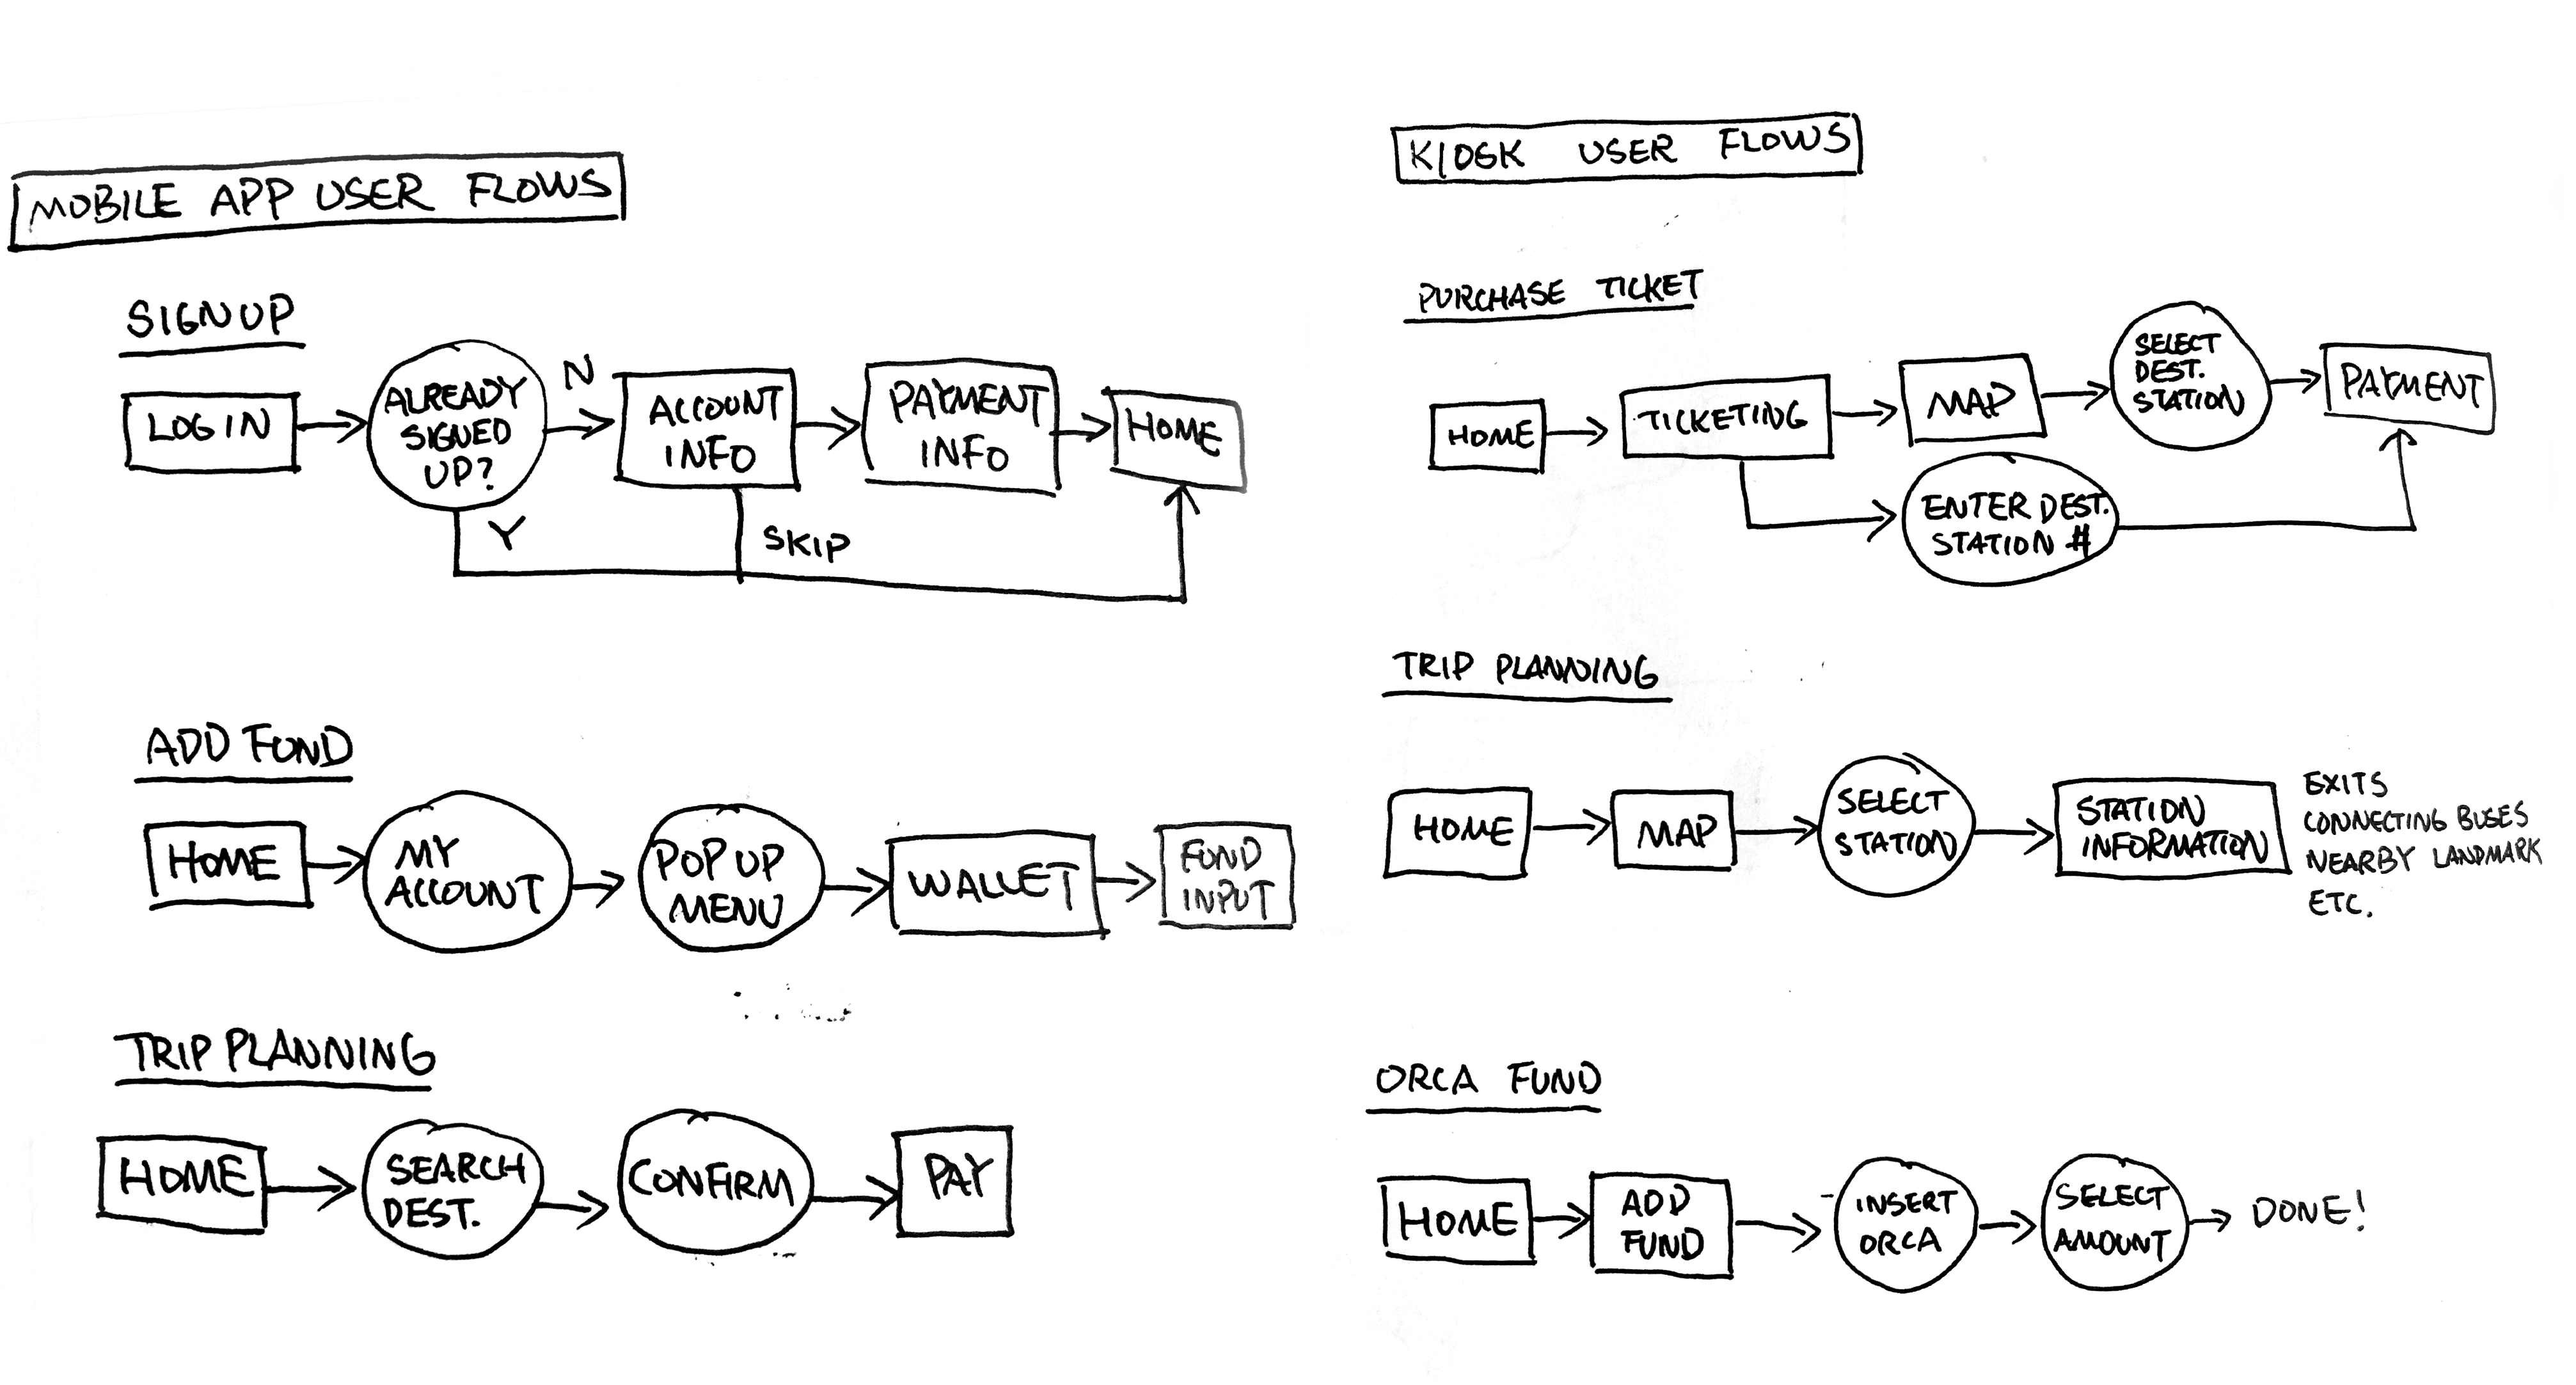 MOBILE APP USER FLOWS
SIGNUP
LOGIN
ALREADY
SIGNED
UP?
N
Y
ACCOUNT
INFO
SKIP
PAYMENT
INFO
HOME
ADD FUND
HOME
MY
ACCOUNT
POP UP
MENU
WALLET
FUND
INPUT
TRIP PLANNING
HOME
SEARCH
DEST.
CONFIRM
PAY
KIOSK USER FLOWS
PURCHASE TICKET
HOME
TICKETING
MAP
SELECT
DEST.
STATION
PAYMENT
ENTER DEST.
STATION #
TRIP PLANNING
HOME
MAP
SELECT
STATION
STATION
INFORMATION
EXITS
CONNECTING BUSES
NEARBY LANDMARK
ETC.
ORCA FUND
HOME
ADD
FUND
INSERT
ORCA
SELECT
AMOUNT
DONE!